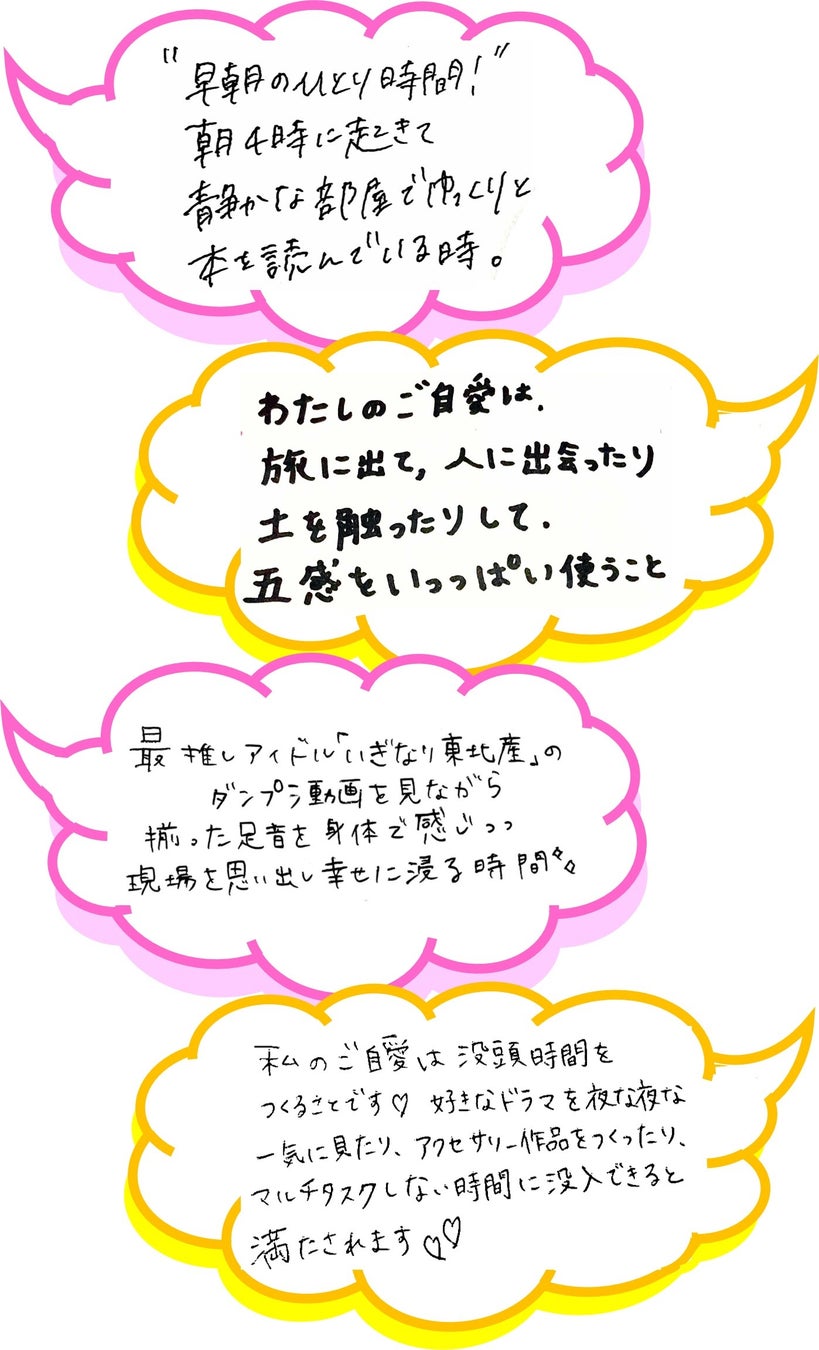 "早朝のひとり時間!"
朝4時に起きて
静かな部屋でゆっくりと
本を読んでいる時。
わたしのご自愛は、
旅に出て、人に出会ったり
土を触ったりして、
五感をいっっぱい使うこと
最推しアイドル「いぎなり東北産」の
ダンプラ動画を見ながら
揃った足音を身体で感じつつ
現場を思い出し幸せに浸る時間✨
私のご自愛は没頭時間を
つくることです♡ 好きなドラマを夜な夜な
一気に見たり、アクセサリー作品をつくったり、
マルチタスクしない時間に没入できると
満たされます♡♡